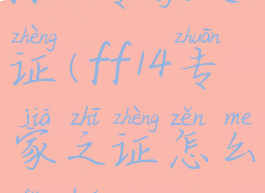 zhèng zhuān
证(ff14专
jiā zhī zhèng zěn me
家之证怎么